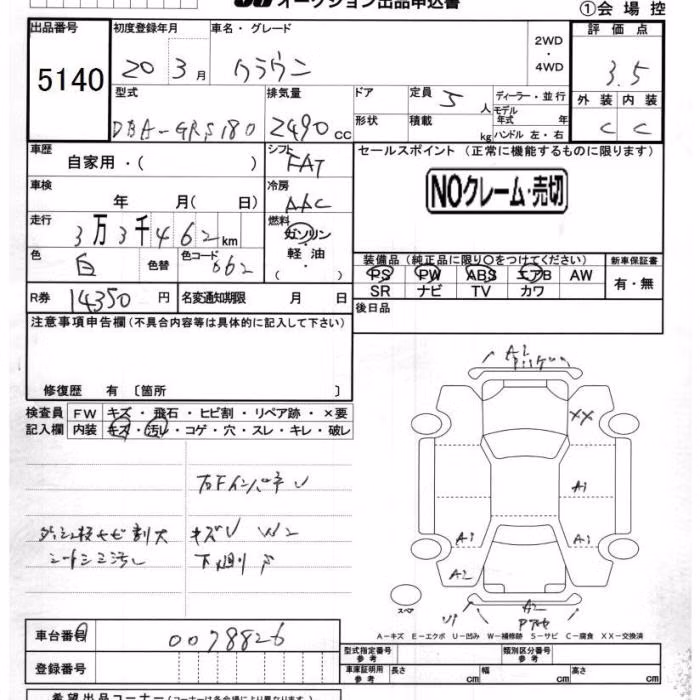 JU オークション出品申込書 ①会場控
出品番号 初度登録年月 車名・グレード 2WD ・ 4WD 評価点
5140 20 3月 クラウン 3.5
型式 排気量 ドア 定員 5人 ディーラー・並行 外装 内装
DBA-GRS180 2490cc 形状 積載 kg モデル年式 年 ハンドル 左・右 C C
車歴 自家用・( ) シフト FAT セールスポイント (正常に機能するものに限ります)
車検 年 月( 日) 冷房 AAC NOクレーム・売切
走行 3万3千462km 燃料 ガソリン・軽油・( )
色 白 色替 色コード 062 装備品(純正品に限り○をつけてください) 新車保証書
PS PW ABS エアB AW 有・無
SR ナビ TV カワ
R券 14350円 名変通知期限 月 日 後日品
注意事項申告欄(不具合内容等は具体的に記入して下さい)
修復歴 有〔箇所 〕
検査員 FW キズ・飛石・ヒビ割・リペア跡・×要
記入欄 内装 キズ・汚レ・コゲ・穴・スレ・キレ・破レ
A2
XX
右FインパネU
A1
キズU W2
シートシミ汚レ 下廻りP
A1 A1
A2
スペア U1 A2
A-キズ E-エクボ U-凹み W-補修跡 S-サビ C-腐食 XX-交換済
車台番号 0078826
型式指定番号 参考 類別区分番号 参考
登録番号 車体証明用 参考 長さ cm 幅 cm 高さ cm
希望出品コーナー(コーナーは各会場により異なります)